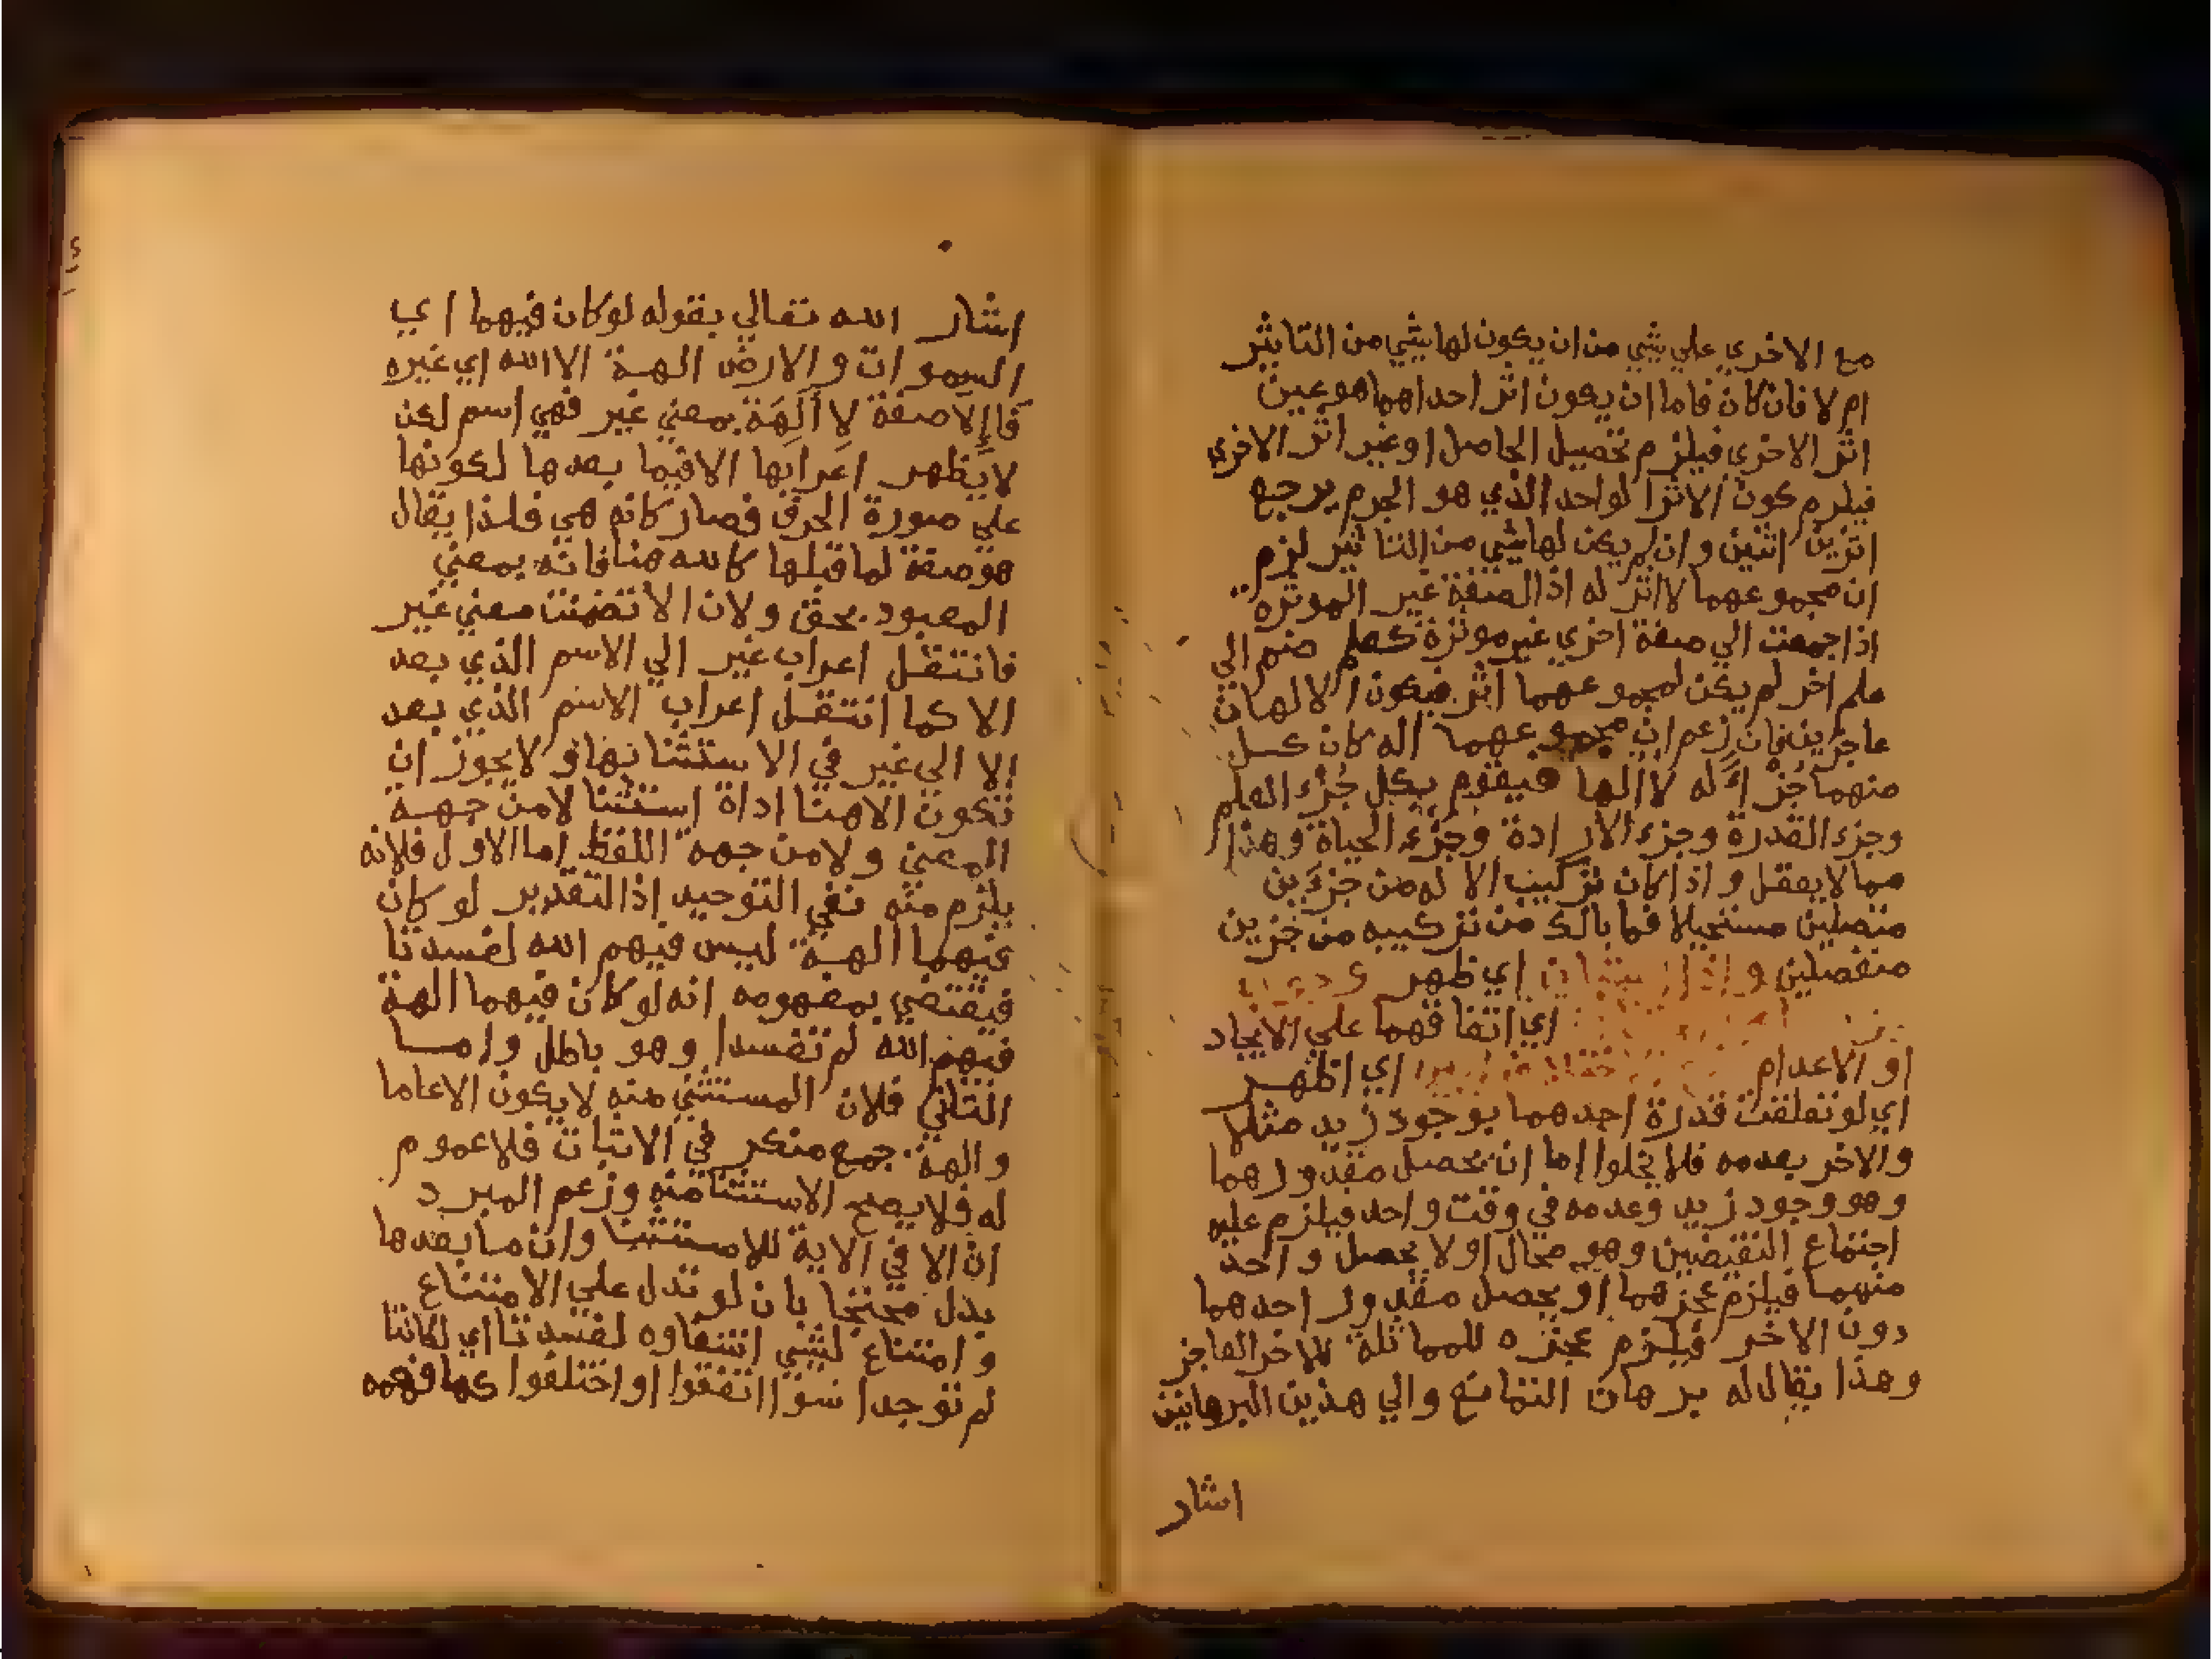 مع الاخري علي شي من ان يكون لها شي من التاثير
ام لا فان كان فاما ان يكون اثر احداهما هو عين
اثر الاخري فيلزم تحصيل الحاصل او غير اثر الاخري
فيلزم كون الاثر الواحد الذي هو الجرم يرجع
اثرين اثنين وان لم يكن لها شي من التاثير لزم
ان مجموعهما لا اثر له اذ الصفة غير الموثره
اذا جمعت الي صفة اخري غير موثرة كعلم ضم الي
علم اخر لم يكن لمجموعهما اثر فيكون الالهان
عاجزين فان زعم ان مجموعهما اله كان كل
منهما جُزْ اِلَه لا الها فيقوم بكل جُزْء العلم
وجزء القدرة وجزء الارادة وجُزْء الحياة وهذا
مما لا يعقل واذا كان تركيب الاله من جزءين
متصلين مستحيلا فما بالك من تركيبه من جزين
منفصلين واذا اي ظهر
اي اتفاقهما علي الايجاد
او الاعدام اي اظهر
اي لو تعلقت قدرة احدهما بوجود زيد مثلا
والاخر بعدمه فلا يخلوا اما ان يحصل مقدورهما
وهو وجود زيد وعدمه في وقت واحد فيلزم عليه
اجتماع النقيضين وهو محال او لا يحصل واحد
منهما فيلزم عجزهما او يحصل مقدور احدهما
دون الاخر فيلزم عجزه للمماثلة للاخر العاجز
وهذا يقال له برهان التمانع والي هذين البرهانين
اشار
اشار الله تعالي بقوله لو كان فيهما اي
السموات والارض الهة الا الله اي غيره
فَاِلّا صفة لاَ اَلِهَة بمعني غير فهي اسم لكن
لا يظهر اعرابها الا فيما بعدها لكونها
علي صورة الحرف فصار كانه هي فلذا يقال
هو صفة لما قبلها كالله هنا فانه بمعني
المعبود بحق ولان الا تضمنت معني غير
فانتقل اعراب غير الي الاسم الذي بعد
الا كما انتقل اعراب الاسم الذي بعد
الا الي غير في الاستثنا بها ولا يجوز ان
تكون الا هنا اداة استثنا لا من جهة
المعني ولا من جهة اللفظ اما الاول فلانه
يلزم منه نفي التوحيد اذ التقدير لو كان
فيهما الهة ليس فيهم الله لفسدتا
فيقتضي بمفهومه انه لو كان فيهما الهة
فيهم الله لم تفسدا وهو باطل واما
الثاني فلان المستثني منه لا يكون الا عاما
والهة جمع منكر في الاثبات فلا عموم
له فلا يصح الاستثنا منه وزعم المبرد
ان الا في الاية للاستثنا وان ما بعدها
بدل محتجا بان لو تدل علي الامتناع
وامتناع الشي انتفاوه لفسدتا اي لكانتا
لم توجدا سوا اتفقوا او اختلفوا كما فهمه